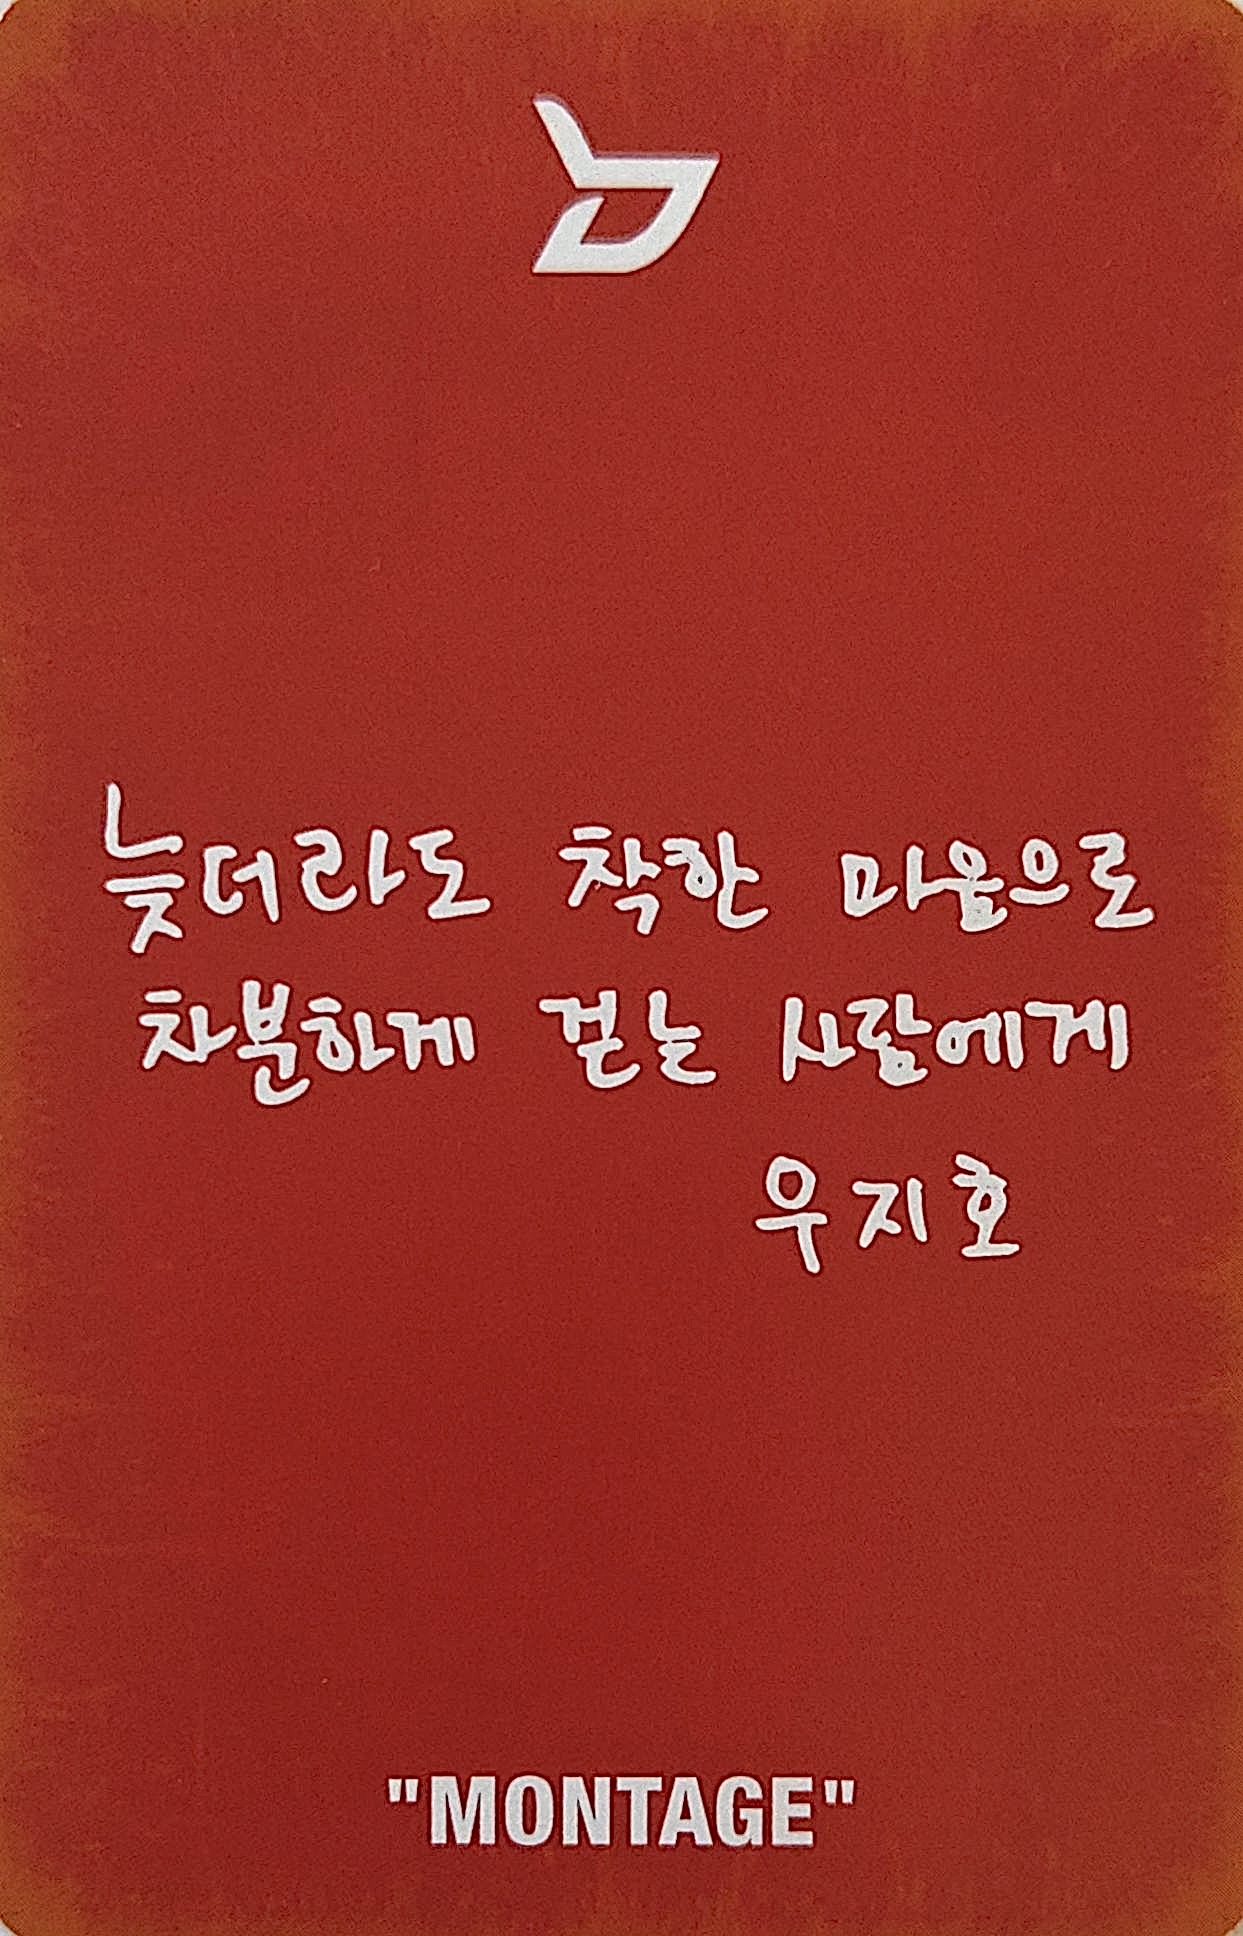 늦더라도 착한 마음으로
차분하게 걷는 사람에게
우지호
"MONTAGE"